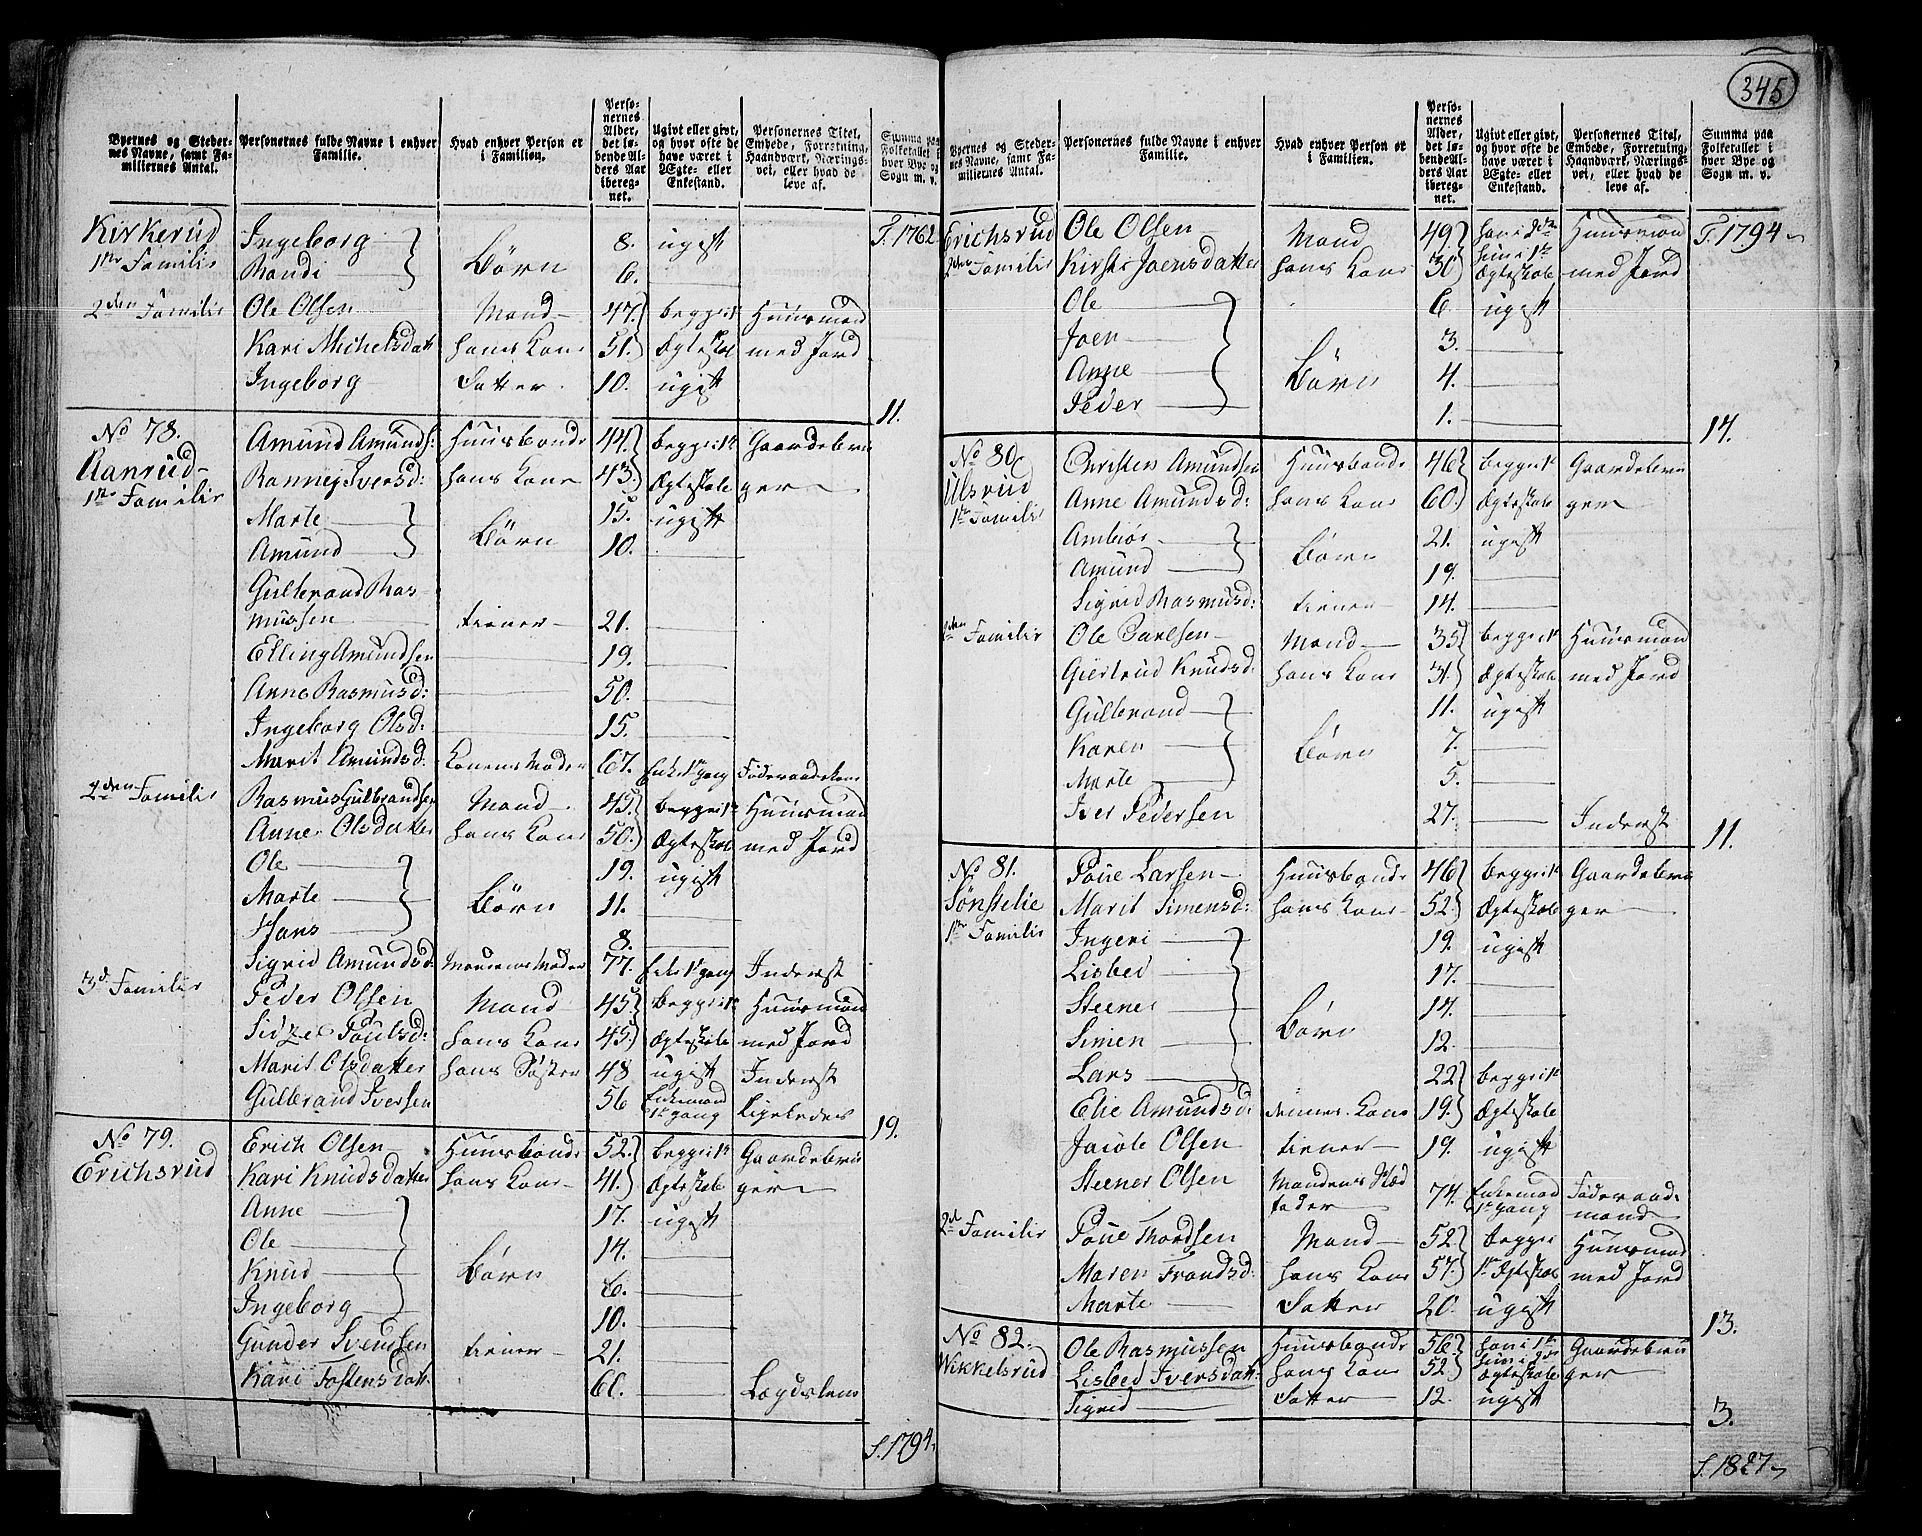 345
Byernes og Steder-
nes Navne, samt Fa-
miliernes Antal.
Personernes fulde Navne i enhver
Familie.
Hvad enhver Person er
i Familien.
Perso-
nernes
Alder,
det lø-
bende Al-
ders Aar
iberegnet.
Ugivt eller givt,
og hvor ofte de
have været i
Ægte- eller
Enkestand.
Personernes Titel,
Embede, Forretning,
Haandværk, Nærings-
vei, eller hvad de
leve af.
Summa paa
Folketallet i
hver Bye og
Sogn m. v.
Kirkerud Ingeborg 8. ugift T. 1762
1ste Familie Randi Børn 6.
2den Familie Ole Olsen Mand 47. begge i 1ste Huusmand
Kari Michelsdatt hans Kone 51. Ægteskab med Jord
Ingeborg Datter 10. ugift
11.
No 78. Amund Amunds: Huusbonde 44. begge i 1ste Gaardebru
Aanrud Rannej Iversd: hans Kone 43. Ægteskab ger
1ste Familie
Marte 15. ugift
Amund Børn 10.
Gulbrand Ras-
mussen tiener 21.
Elling Amundsen 19.
Anne Rasmusd: 50.
Ingeborg Olsd: 15.
Marit Amundsd. Konens Moder 67. Enke 1ste gang Føderaadskone
2den Familie Rasmus Gulbrandsen Mand 45. begge i 1ste Huusmand
Anne Olsdatter hans Kone 50. Ægteskab med Jord
Ole 19. ugift
Marte Børn 11.
Hans 8.
Sigrid Amundsd. Mandens Moder 77. Enke 1ste gang Inderst
3d Familie Peder Olsen Mand 45. begge i 1ste Huusmand
Sidzel Poulsd: hans Kone 45. Ægteskab med Jord
Marit Olsdatter hans Søster 48 ugift Inderst
Gulbrand Iversen 56 Enkemand 1ste gang Ligeledes
19.
No 79. Erich Olsen Huusbonde 52. begge i 1ste Gaardebru
Erichsrud Kari Knudsdatter hans Kone 41. Ægteskab ger
Anne 17. ugift
Ole 14.
Knud Børn 6.
Ingeborg 10.
Gunder Svendsen tiener 21.
Kari Tostensdatt. 60. Lægdslem
S. 1794.
Byernes og Steder-
nes Navne, samt Fa-
miliernes Antal.
Personernes fulde Navne i enhver
Familie.
Hvad enhver Person er
i Familien.
Perso-
nernes
Alder,
det lø-
bende Al-
ders Aar
iberegnet.
Ugivt eller givt,
og hvor ofte de
have været i
Ægte- eller
Enkestand.
Personernes Titel,
Embede, Forretning,
Haandværk, Nærings-
vei, eller hvad de
leve af.
Summa paa
Folketallet i
hver Bye og
Sogn m. v.
Erichsrud Ole Olsen Mand 49. han i 2det Huusmand T. 1794
2den Familie Kirsti Joensdatter hans Kone 30 hun i 1ste Ægteskab med Jord
Ole 6. ugift
Joen 3.
Anne Børn 4.
Peder 1.
14.
No 80. Christen Amundsen Huusbonde 46 begge i 1ste Gaardebru
Ulsrud Anne Amundsd: hans Kone 60. Ægteskab ger
1ste Familie
Ambiør 21. ugift
Amund Børn 19.
Sigrid Rasmusd: tiener 14.
2den Familie Ole Carlsen Mand 35 begge i 1ste Huusmand
Giertrud Knudsd: hans Kone 31. Ægteskab med Jord
Gulbrand 11. ugift
Karen Børn 7.
Marte 5.
Iver Pedersen 27. Inderst
11.
No 81. Poue Larsen Huusbonde 46 begge i 1ste Gaardebru
Sønstelie Marit Simensd: hans Kone 52. Ægteskab ger
1ste Familie Ingeri 19. ugift
Lisbed 17.
Steener 14.
Simen Børn 12.
Lars 22 begge i 1ste
Elie Amundsd: dennes Kone 19. Ægteskab
Jacob Olsen tiener 19. ugift
Steener Olsen Mandens Stedfader 74. Enkemand 1ste gang Føderaadsmand
2d Familie Poue Thordsen Mand 52. begge i Huusmand
Maren Frandsd: hans Kone 57. 1ste Ægteskab med Jord
Marte Datter 20. ugift
13.
No 82. Ole Rasmussen Huusbonde 56. han i 1ste Gaardebru
Wikkelsrud Lisbed Iversdatt: hans Kone 52. hun i 2det Ægteskab ger
Sigrid Datter 12. ugift
3.
S. 1827